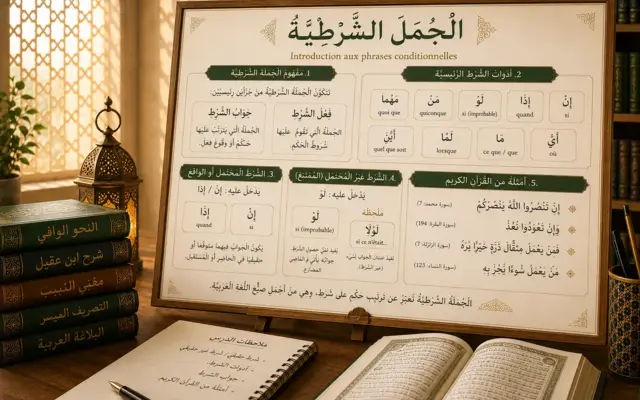 الْجُمَلُ الشَّرْطِيَّةُ
Introduction aux phrases conditionnelles
1. مَفْهُومُ الجُمْلَةِ الشَّرْطِيَّةِ
تَتَكَوَّنُ الجُمْلَةُ الشَّرْطِيَّةُ مِنْ جُزْأَيْنِ رَئِيسِيَّيْنِ:
فِعْلُ الشَّرْطِ
الجُمْلَةُ الَّتِي تَقُومُ عَلَيْهَا
شُرُوطُ الحُكْمِ.
جَوَابُ الشَّرْطِ
الجُمْلَةُ الَّتِي يَتَرَتَّبُ عَلَيْهَا
حُكْمٌ أَوْ وُقُوعُ فِعْلٍ.
2. أَدَوَاتُ الشَّرْطِ الرَّئِيسِيَّةُ
إِنْ
si
إِذَا
quand
لَوْ
si (improbable)
مَنْ
quiconque
مَهْمَا
quoi que
أَيُّ
où
مَا
ce que / que
لَمَّا
lorsque
أَيْنَ
quel que soit
3. الشَّرْطُ المُحْتَمَلُ أَوِ الوَاقِعُ
يَدْخُلُ عَلَيْهِ: إِنْ / إِذَا
إِنْ
si
إِذَا
quand
يَكُونُ الجَوَابُ فِيهِمَا مُتَوَقَّعًا أَوْ
حَقِيقِيًّا فِي الحَاضِرِ أَوِ المُسْتَقْبَلِ.
4. الشَّرْطُ غَيْرُ المُحْتَمَلِ (المُمْتَنِعُ)
يَدْخُلُ عَلَيْهِ: لَوْ
لَوْ
si (improbable)
مُلَاحَظَة
لَوْلَا
si ce n'était...
5. أَمْثِلَةٌ مِنَ القُرْآنِ الكَرِيمِ
إِنْ تَنْصُرُوا اللَّهَ يَنْصُرْكُمْ (سورة محمد: 7)
وَإِنْ تَعُودُوا نَعُدْ (سورة الأنفال: 194)
فَمَنْ يَعْمَلْ مِثْقَالَ ذَرَّةٍ خَيْرًا يَرَهُ (سورة الزلزلة: 7)
مَنْ يَعْمَلْ سُوءًا يُجْزَ بِهِ (سورة النساء: 123)
الجُمْلَةُ الشَّرْطِيَّةُ تُعَبِّرُ عَنْ تَرْتِيبِ حُكْمٍ عَلَى شَرْطٍ، وَهِيَ مِنْ أَجْمَلِ صِيَغِ اللُّغَةِ العَرَبِيَّةِ.
النحو الوافي
شرح ابن عقيل
مغني اللبيب
التصريف الميسر
البلاغة العربية
ملاحظات الدرس
- أدوات الشرط
- جواب الشرط
- أمثلة من القرآن الكريم